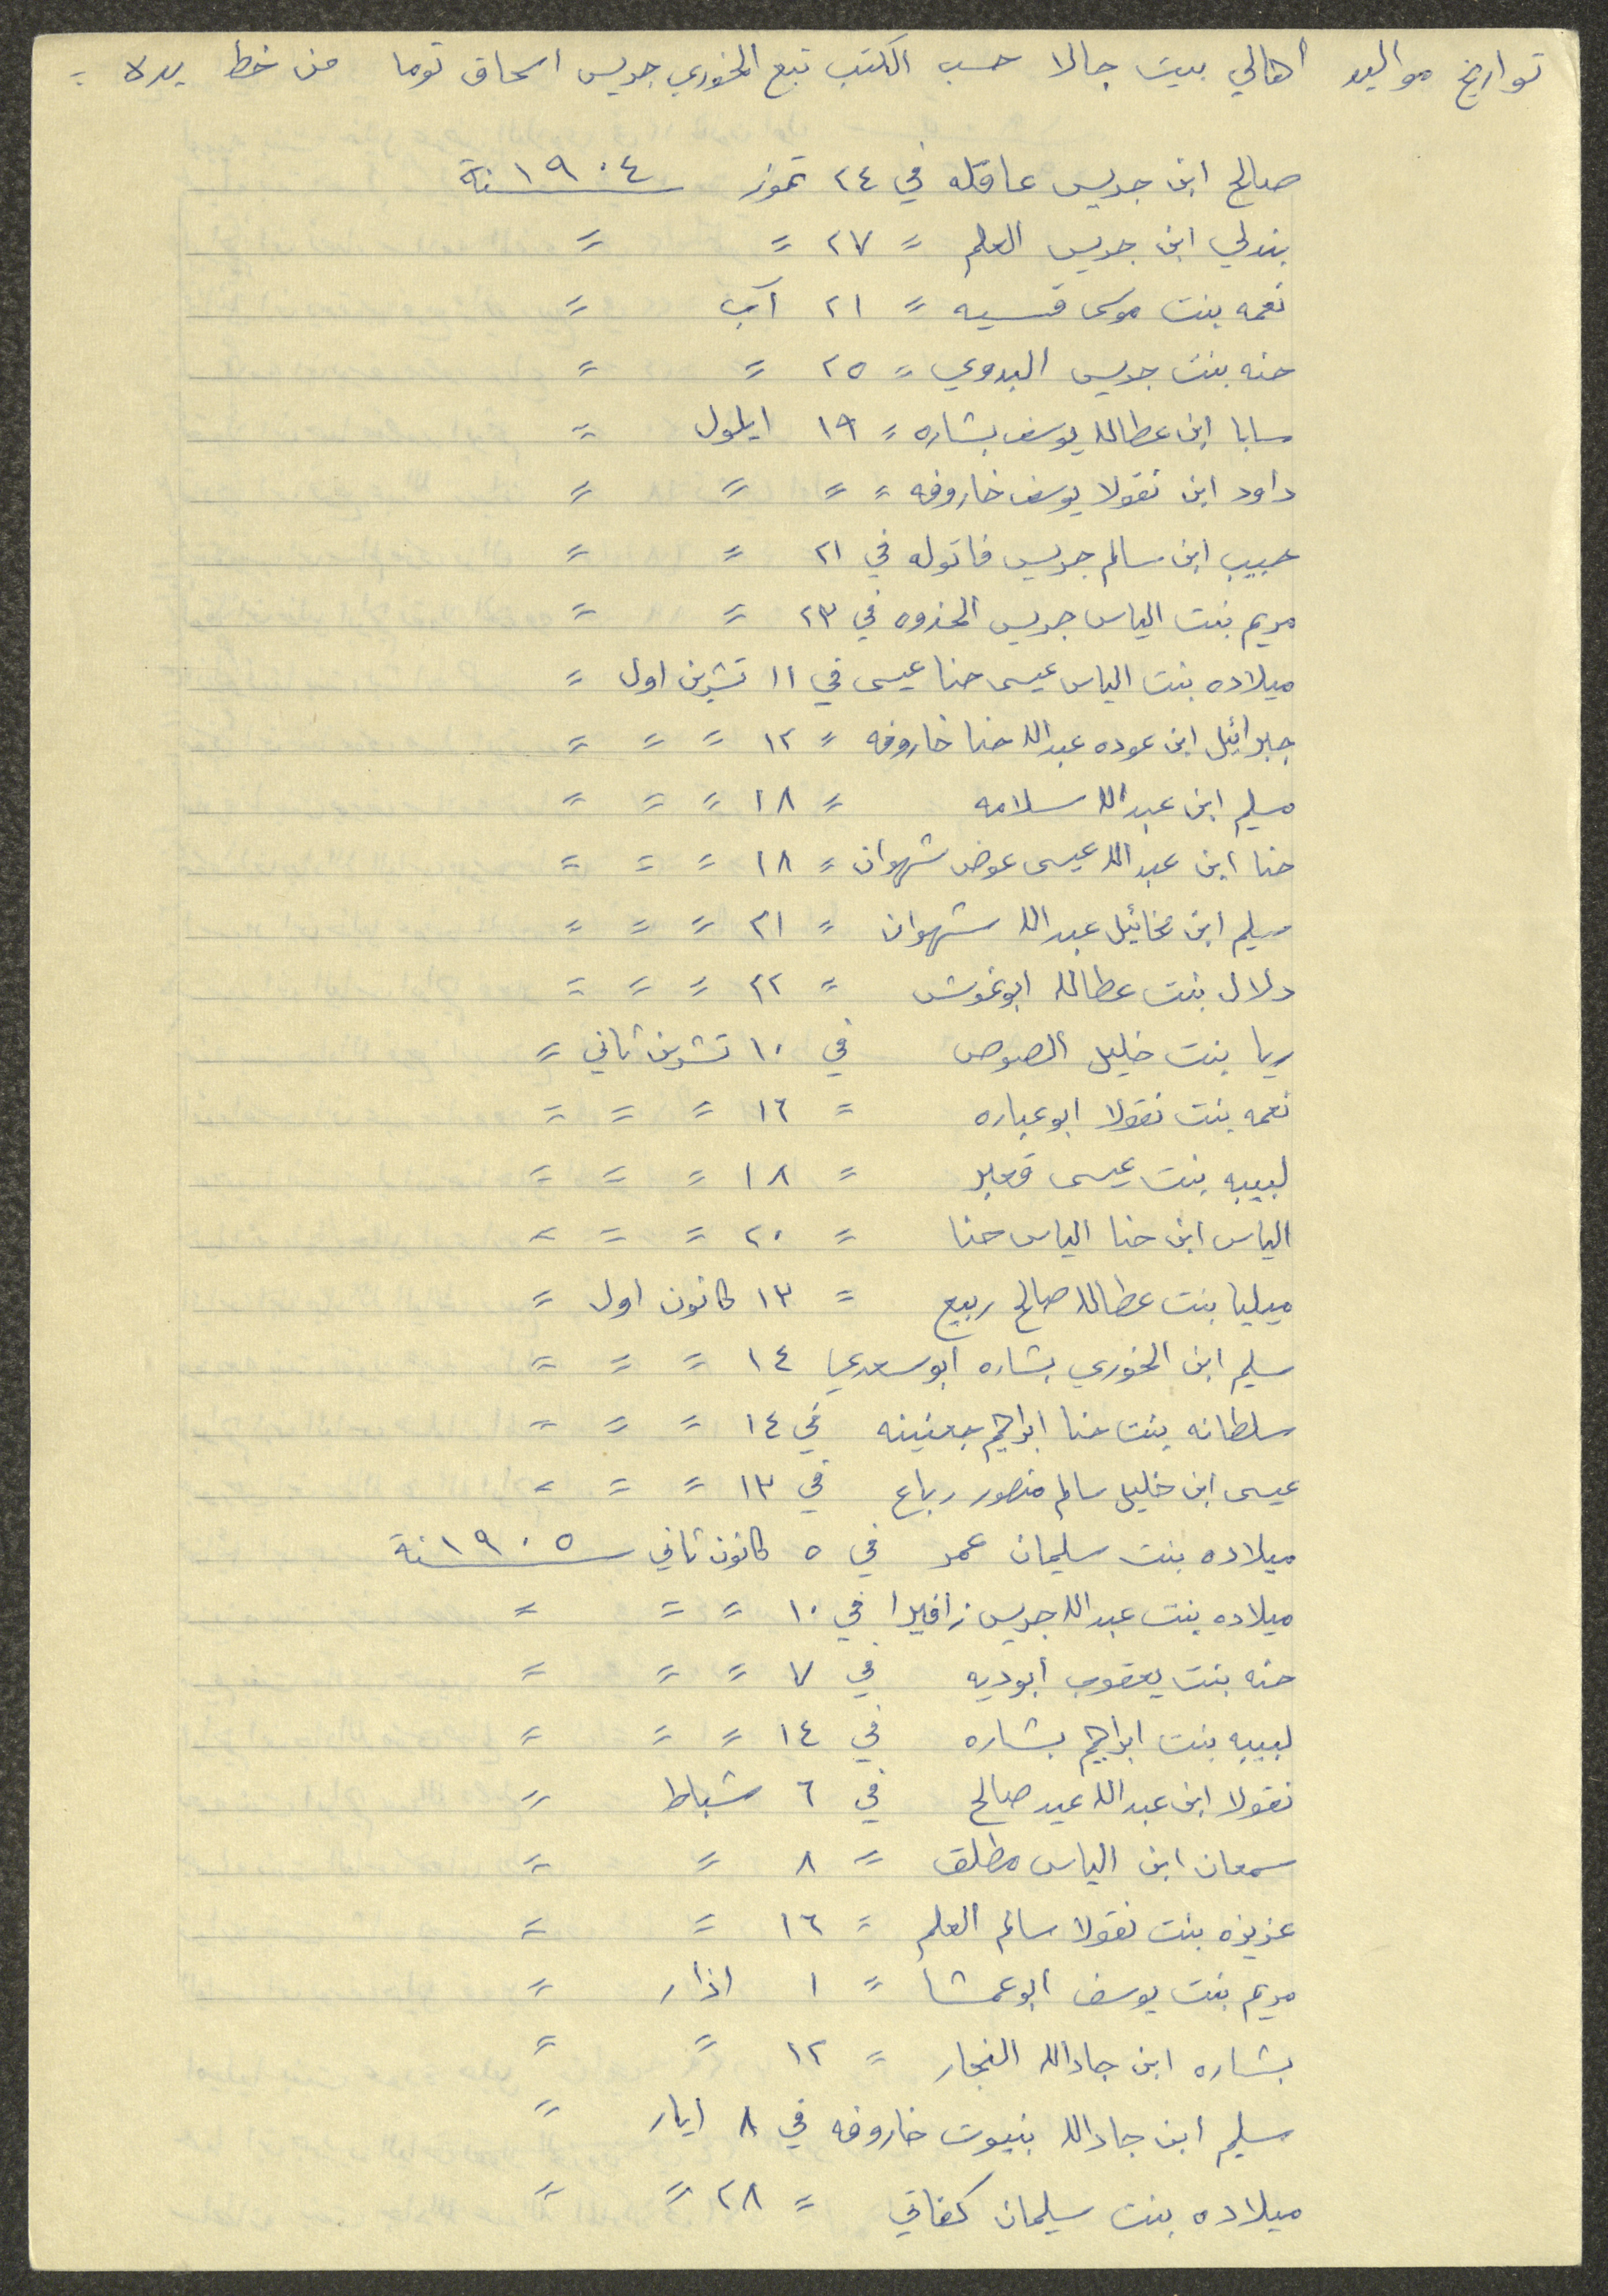 تواريخ مواليد اهالي بيت جالا حسب الكتب تبع الخوري جريس اسحاق توما من خط يده :
صالح ابن جريس عاقله في ٢٤ تموز سنة ١٩٠٤
بندلي ابن جريس العلم = ٢٧ = =
نعمه بنت موسى قسيه = ٢١ آب =
حنه بنت جريس البدوي = ٢٥ = =
سابا ابن عطالله يوسف بشاره = ١٩ ايلول =
داود ابن نقولا يوسف خاروفه = = = =
حبيب ابن سالم جريس فاتوله في ٢١ = =
مريم بنت الياس جريس الحذوه في ٢٣ = =
ميلاده بنت الياس عيسى حنا عيسى في ١١ تشرين اول =
جبرائيل ابن عوده عبدالله حنا خاروفه = ١٢ = = =
مسلم ابن عبدالله سلامه = ١٨ = = =
حنا ابن عبدالله عيسى عوض شهوان = ١٨ = = =
سليم ابن مخائيل عبدالله شهوان = ٢١ = = =
دلال بنت عطالله ابوغوش = ٢٢ = = =
ريا بنت خليل الصوص في ١٠ تشرين ثاني =
نعمه بنت نقولا ابوعباره = ١٦ = = =
لبيبه بنت عيسى قمبر = ١٨ = = =
الياس ابن حنا الياس حنا = ٢٠ = = =
ميليا بنت عطالله صالح ربيع = ١٣ كانون اول =
سليم ابن الخوري بشاره ابوسعدي ١٤ = = =
سلطانه بنت حنا ابراهيم بعنينه في ١٤ = = =
عيسى ابن خليل سالم منصور رباع في ١٣ = = =
ميلاده بنت سليمان عمر في ٥ كانون ثاني سنة ١٩٠٥
ميلاده بنت عبدالله جريس زافيرا في ١٠ = = =
حنه بنت يعقوب ابوديه في ٧ = = =
لبيبه بنت ابراهيم بشاره في ١٤ = = =
نقولا ابن عبدالله عيد صالح في ٦ شباط =
سمعان ابن الياس مطلق = ٨ = =
عزيزه بنت نقولا سالم العلم = ١٦ = =
مريم بنت يوسف ابوعمشا = ١ اذار =
بشاره ابن جادالله النجار = ١٢ = =
سليم ابن جادالله بنيوت خاروفه في ٨ ايار =
ميلاده بنت سليمان كفاتي = ٢٨ = =